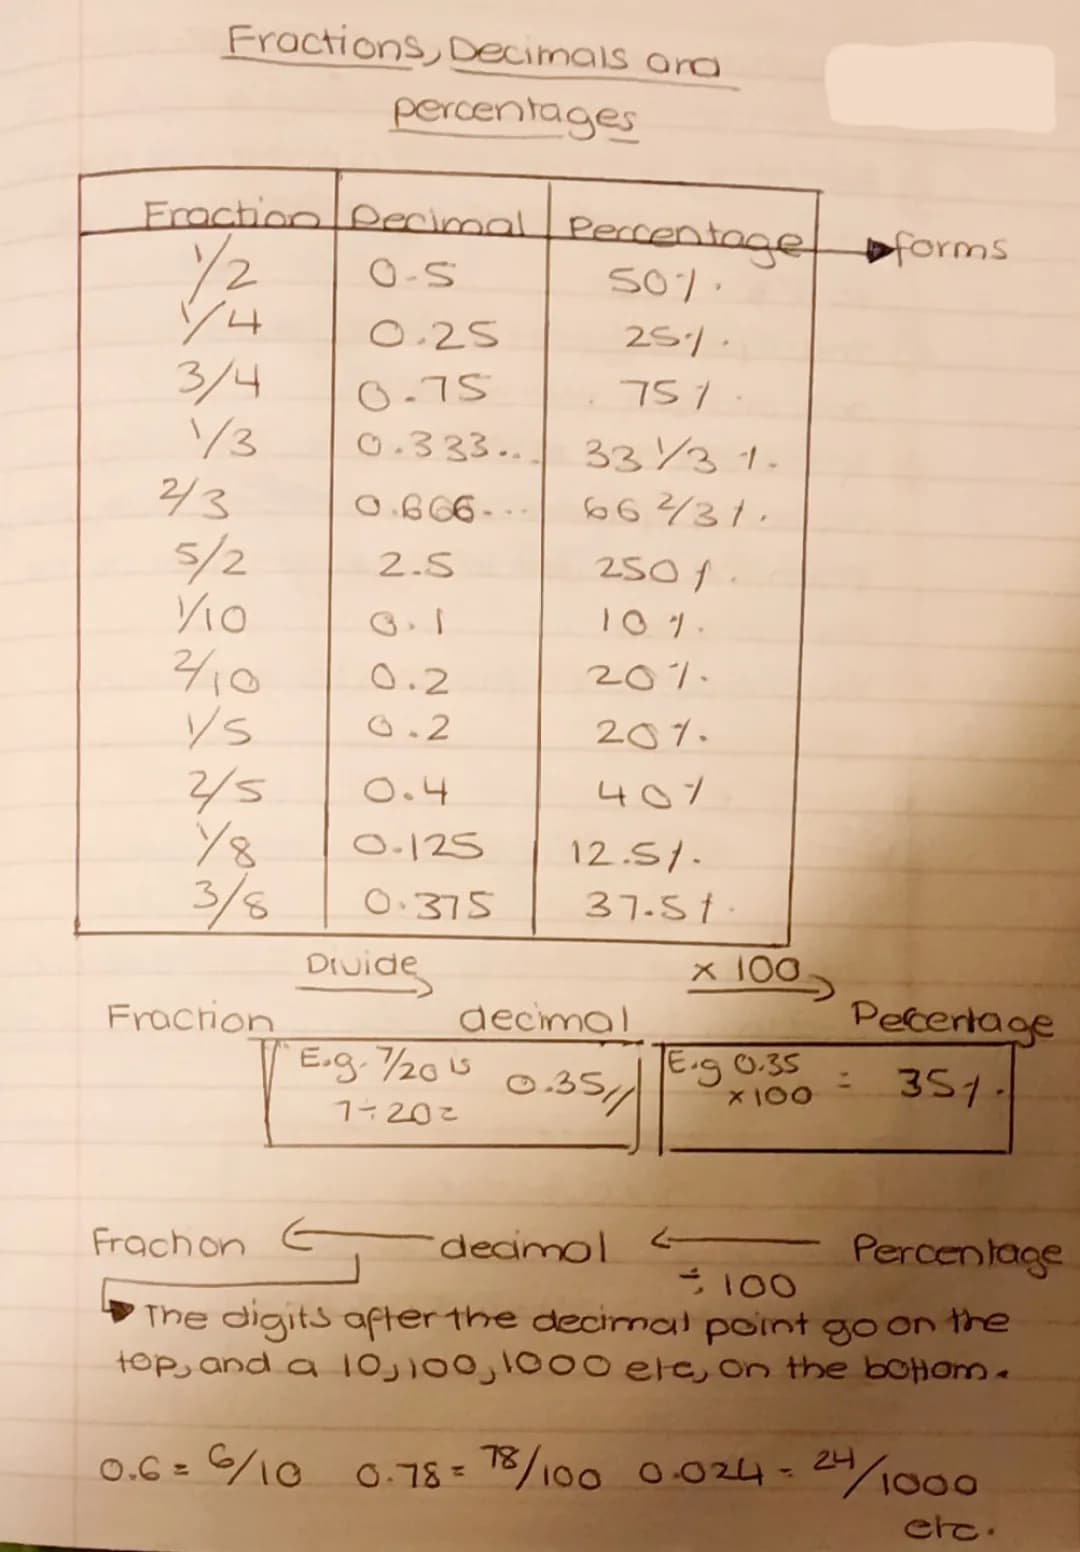 Fractions, Decimals and
percentages
Fraction Decimal Percentage forms
1/2 0.5 50%
1/4 0.25 25%
3/4 0.75 75%
1/3 0.333... 33 1/3 %
2/3 0.666... 66 2/3%
5/2 2.5 250%
1/10 0.1 10%
2/10 0.2 20%
1/5 0.2 20%
2/5 0.4 40%
1/8 0.125 12.5%
3/8 0.375 37.5%
Divide × 100
Fraction decimal Percentage
E.g. 7/20 is 0.35 E.g 0.35 = 35%
7÷20= ×100
Fraction decimal Percentage
÷ 100
The digits after the decimal point go on the
top, and a 10, 100, 1000 etc, on the bottom.
0.6 = 6/10 0.78 = 78/100 0.024 = 24/1000
etc.